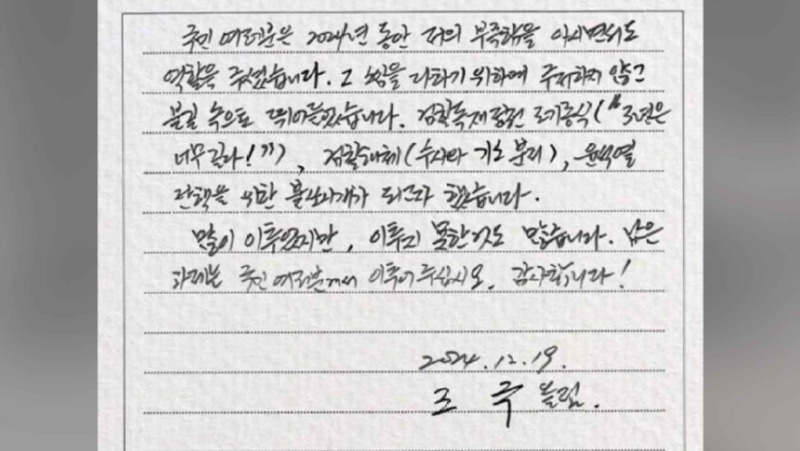 국민 여러분은 2024년 동안 저의 부족함을 아시면서도
역할을 주셨습니다. 그 소임을 다하기 위하여 주저하지 않고
불길 속으로 뛰어들었습니다. 검찰독재정권 조기종식("3년은
너무 길다!"), 검찰해체(수사와 기소 분리), 윤석열
탄핵을 위한 불쏘시개가 되고자 했습니다.
많이 이루었지만, 이루지 못한 것도 많습니다. 남은
과제는 국민 여러분께서 이루어 주십시오. 감사합니다!
2024.12.19.
조국 올림.